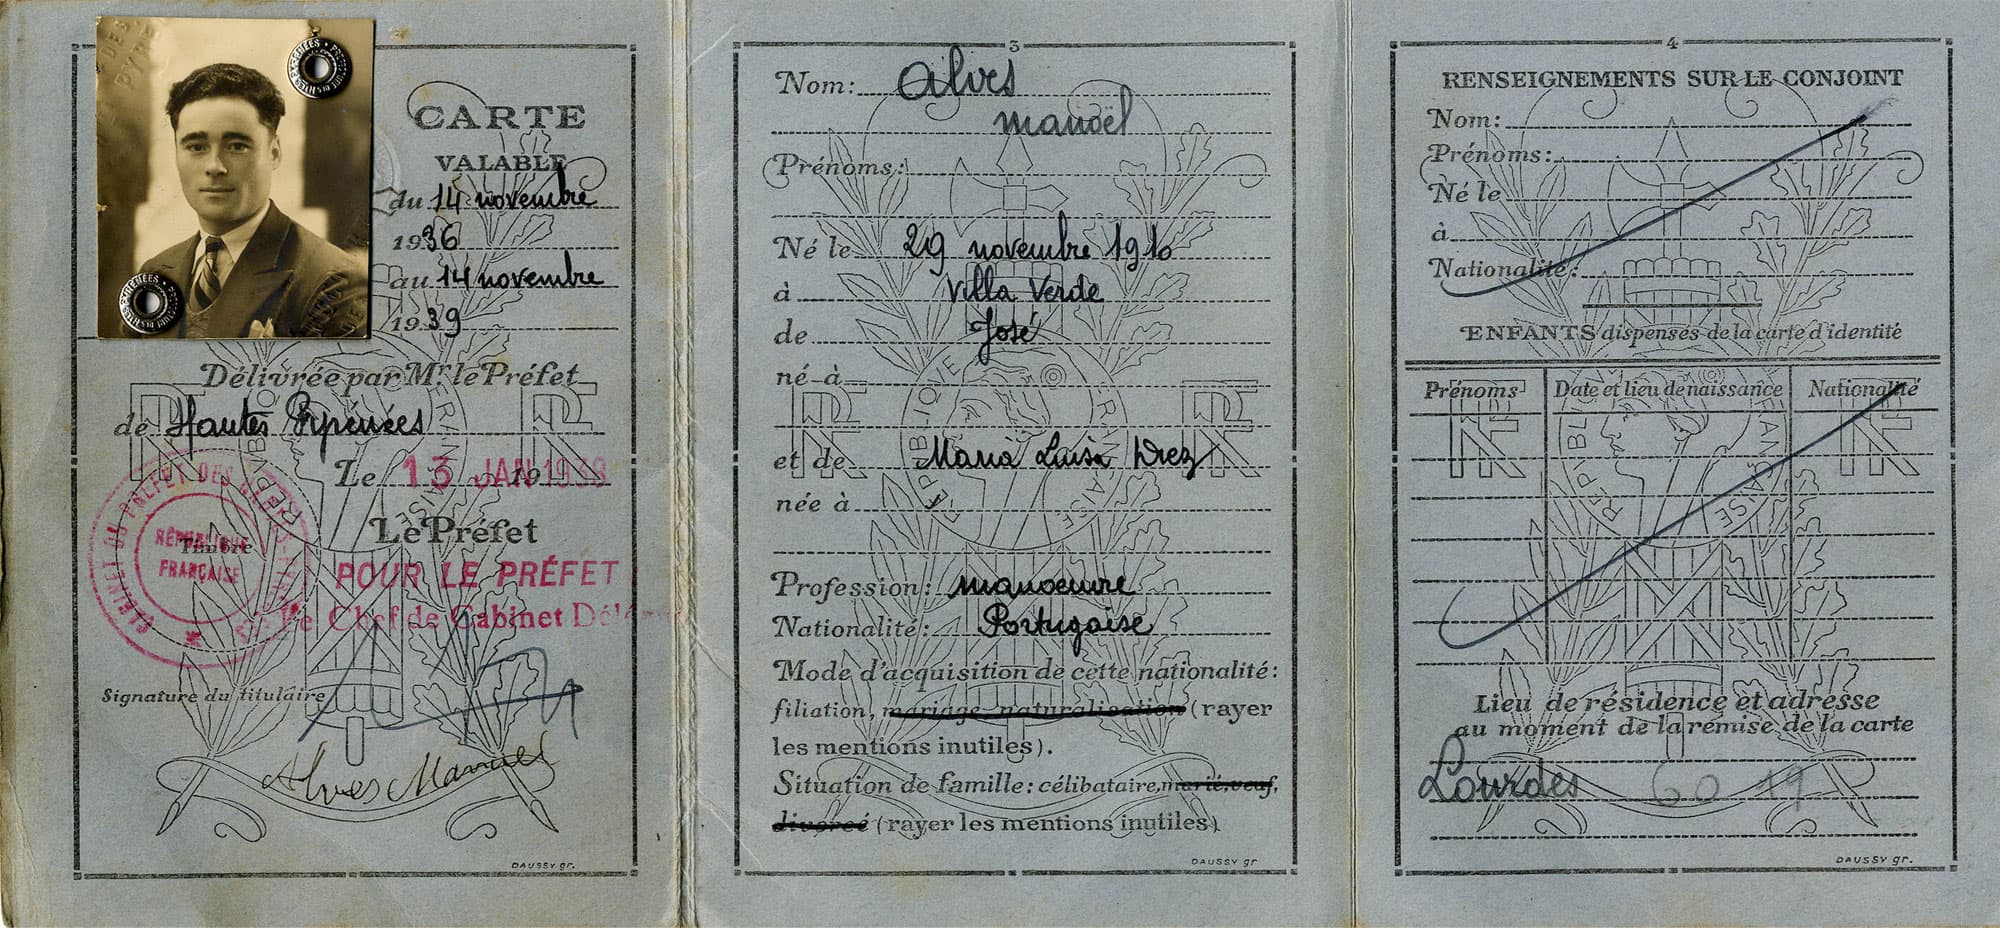 CARTE
VALABLE
du 14 novembre
1936
au 14 novembre
1939
Délivrée par Mr. le Préfet
de Hautes Pyrénées
Le 13 JAN 1938
Le Préfet
POUR LE PRÉFET
Le Chef de Cabinet
CABINET DU PRÉFET DES
RÉPUBLIQUE
FRANÇAISE
Timbre
Signature du titulaire
Alves Manuel
DAUSSY gr.
3
Nom: Alves
manoël
Prénoms:
Né le 29 novembre 1910
à Villa Verde
de José
né à
et de Maria Luisa
née à
Profession: manoeuvre
Nationalité: Portugaise
Mode d'acquisition de cette nationalité:
filiation, mariage, naturalisation (rayer
les mentions inutiles).
Situation de famille: célibataire, marié, veuf,
divorcé (rayer les mentions inutiles)
DAUSSY gr
4
RENSEIGNEMENTS SUR LE CONJOINT
Nom:
Prénoms:
Né le
à
Nationalité:
ENFANTS dispensés de la carte d'identité
Prénoms Date et lieu de naissance Nationalité
RÉPUBLIQUE FRANÇAISE
RF RF
Lieu de résidence et adresse
au moment de la remise de la carte
Lourdes 60 19
DAUSSY gr.